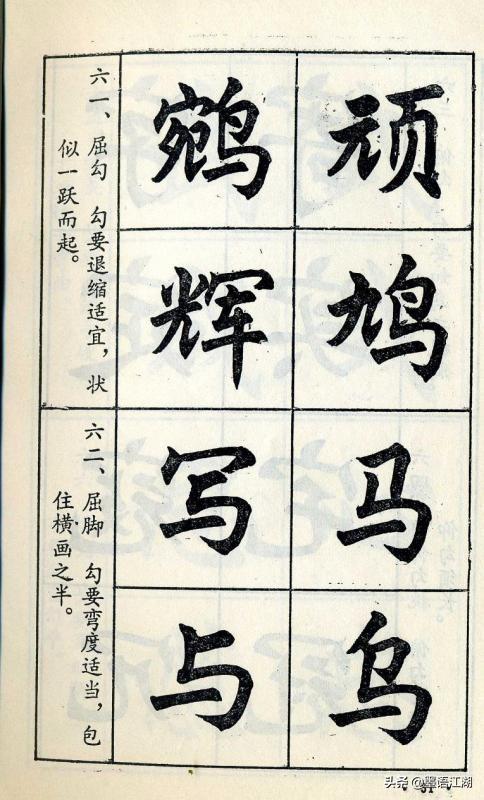 顽
鸠
马
乌
鹓
辉
写
与
六一、屈勾 勾要退缩适宜，状
似一跃而起。
六二、屈脚 勾要弯度适当，包
住横画之半。
头条 @墨语江湖